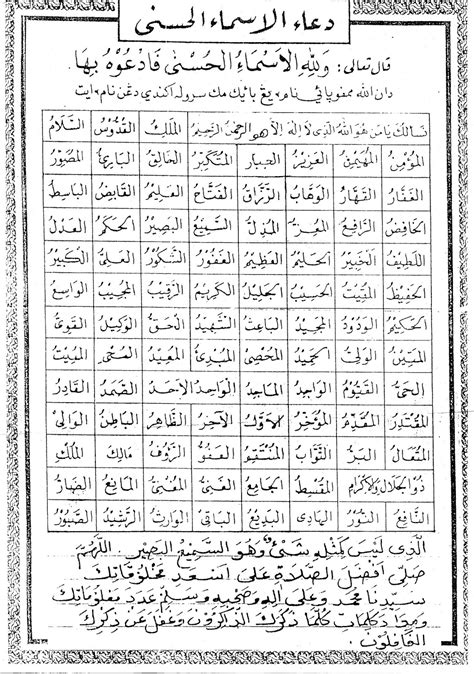 دعاء الاسماء الحسنى
قال تعالى: وَلِلّٰهِ الْاَسْمَاءُ الْحُسْنٰى فَادْعُوْهُ بِهَا.
دان الله ممڤوپاٴي نام٢ يڠ باٴيك مك سروله اكندي دڠن نام٢ ايت
نسالك يا من هو الله الذى لا إله إلا هو الرحمن الرحيم الملك القدوس السلام
المؤمن المهيمن العزيز الجبار المتكبر الخالق البارئ المصور
الغفار القهار الوهاب الرزاق الفتاح العليم القابض الباسط
الخافض الرافع المعز المذل السميع البصير الحكم العدل
اللطيف الخبير الحليم العظيم الغفور الشكور العلى الكبير
الحفيظ المقيت الحسيب الجليل الكريم الرقيب المجيب الواسع
الحكيم الودود المجيد الباعث الشهيد الحق الوكيل القوى
المتين الولى الحميد المحصى المبدئ المعيد المحى المميت
الحى القيوم الواجد الماجد الواحد الاحد الصمد القادر
المقتدر المقدم المؤخر الاول الآخر الظاهر الباطن الوالى
المتعال البر التواب المنتقم العفو الرؤف مالك الملك
ذو الجلال والاكرام المقسط الجامع الغنى المغنى المانع الضار
النافع النور الهادى البديع الباقى الوارث الرشيد الصبور
الذى ليس كمثله شىء وهو السميع البصير. اللهم
صلى افضل الصلاة على اسعد مخلوقاتك
سيدنا محمد وعلى اله وصحبه وسلم عدد معلوماتك
ومداد كلماتك كلما ذكرك الذاكرون وغفل عن ذكرك
الغافلون.